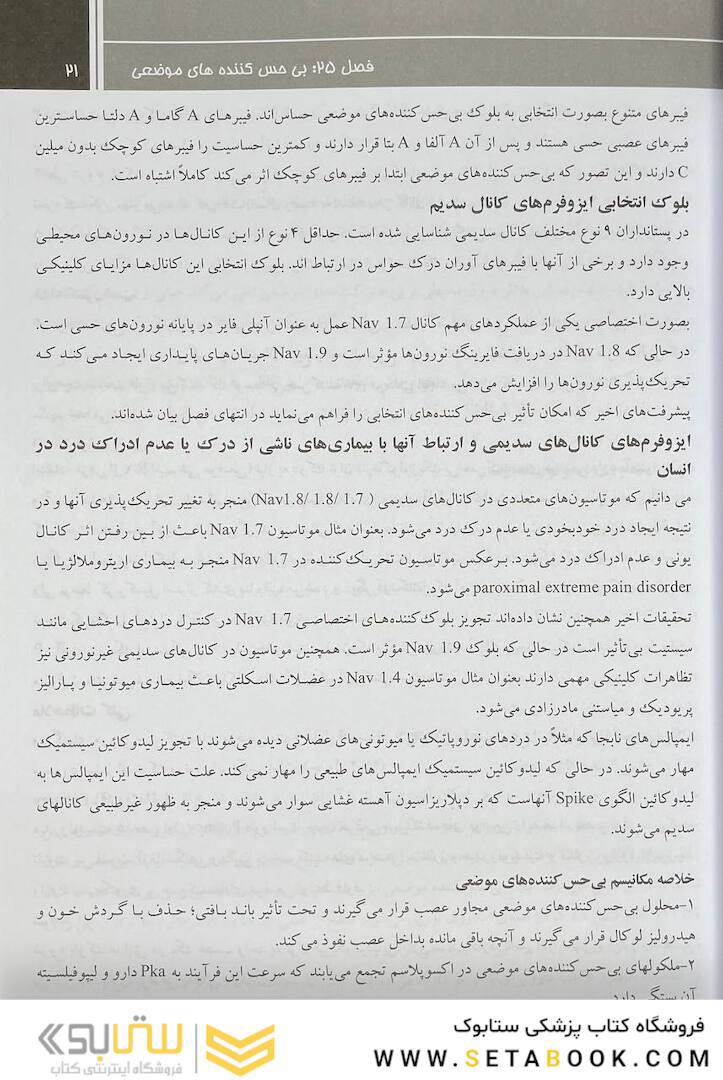 ۲۱
فصل ۲۵: بی حس کننده های موضعی
فیبرهای متنوع بصورت انتخابی به بلوک بی‌حس‌کننده‌های موضعی حساس‌اند. فیبرهای A گاما و A دلتا حساسترین
فیبرهای عصبی حسی هستند و پس از آن A آلفا و A بتا قرار دارند و کمترین حساسیت را فیبرهای کوچک بدون میلین
C دارند و این تصور که بی‌حس‌کننده‌های موضعی ابتدا بر فیبرهای کوچک اثر می‌کند کاملاً اشتباه است.
بلوک انتخابی ایزوفرم‌های کانال سدیم
در پستانداران ۹ نوع مختلف کانال سدیمی شناسایی شده است. حداقل ۴ نوع از این کانال‌ها در نورون‌های محیطی
وجود دارد و برخی از آنها با فیبرهای آوران درک حواس در ارتباط اند. بلوک انتخابی این کانال‌ها مزایای کلینیکی
بالایی دارد.
بصورت اختصاصی یکی از عملکردهای مهم کانال Nav 1.7 عمل به عنوان آنپلی فایر در پایانه نورون‌های حسی است.
در حالی که Nav 1.8 در دریافت فایرینگ نورون‌ها مؤثر است و Nav 1.9 جریان‌های پایداری ایجاد می‌کند که
تحریک‌پذیری نورون‌ها را افزایش می‌دهد.
پیشرفت‌های اخیر که امکان تأثیر بی‌حس‌کننده‌های انتخابی را فراهم می‌نماید در انتهای فصل بیان شده‌اند.
ایزوفرم‌های کانال‌های سدیمی و ارتباط آنها با بیماری‌های ناشی از درک یا عدم ادراک درد در
انسان
می دانیم که موتاسیون‌های متعددی در کانال‌های سدیمی ( 1.7 /1.8 /Nav1.8) منجر به تغییر تحریک‌پذیری آنها و در
نتیجه ایجاد درد خودبخودی یا عدم درک درد می‌شود. بعنوان مثال موتاسیون Nav 1.7 باعث از بین رفتن اثر کانال
یونی و عدم ادراک درد می‌شود. برعکس موتاسیون تحریک‌کننده در Nav 1.7 منجر به بیماری اریتروملالژیا یا
paroximal extreme pain disorder می‌شود.
تحقیقات اخیر همچنین نشان داده‌اند تجویز بلوک‌کننده‌های اختصاصی Nav 1.7 در کنترل دردهای احشایی مانند
سیستیت بی‌تأثیر است در حالی که بلوک Nav 1.9 مؤثر است. همچنین موتاسیون در کانال‌های سدیمی غیرنورونی نیز
تظاهرات کلینیکی مهمی دارند بعنوان مثال موتاسیون Nav 1.4 در عضلات اسکلتی باعث بیماری میوتونیا و پارالیز
پریودیک و میاستنی مادرزادی می‌شود.
ایمپالس‌های نابجا که مثلاً در دردهای نوروپاتیک یا میوتونی‌های عضلانی دیده می‌شوند با تجویز لیدوکائین سیستمیک
مهار می‌شوند. در حالی که لیدوکائین سیستمیک ایمپالس‌های طبیعی را مهار نمی‌کند. علت حساسیت این ایمپالس‌ها به
لیدوکائین الگوی Spike آنهاست که بر دپلاریزاسیون آهسته غشایی سوار می‌شوند و منجر به ظهور غیرطبیعی کانالهای
سدیم می‌شوند.
خلاصه مکانیسم بی‌حس‌کننده‌های موضعی
۱-محلول بی‌حس‌کننده‌های موضعی مجاور عصب قرار می‌گیرند و تحت تأثیر باند بافتی؛ حذف با گردش خون و
هیدرولیز لوکال قرار می‌گیرند و آنچه باقی مانده بداخل عصب نفوذ می‌کند.
۲-ملکولهای بی‌حس‌کننده‌های موضعی در اکسوپلاسم تجمع می‌یابند که سرعت این فرآیند به Pka دارو و لیپوفیلسیته
آن بستگی دارد.
فروشگاه کتاب پزشکی ستابوک
WWW.SETABOOK.COM
ستابوک
فروشگاه اینترنتی کتاب